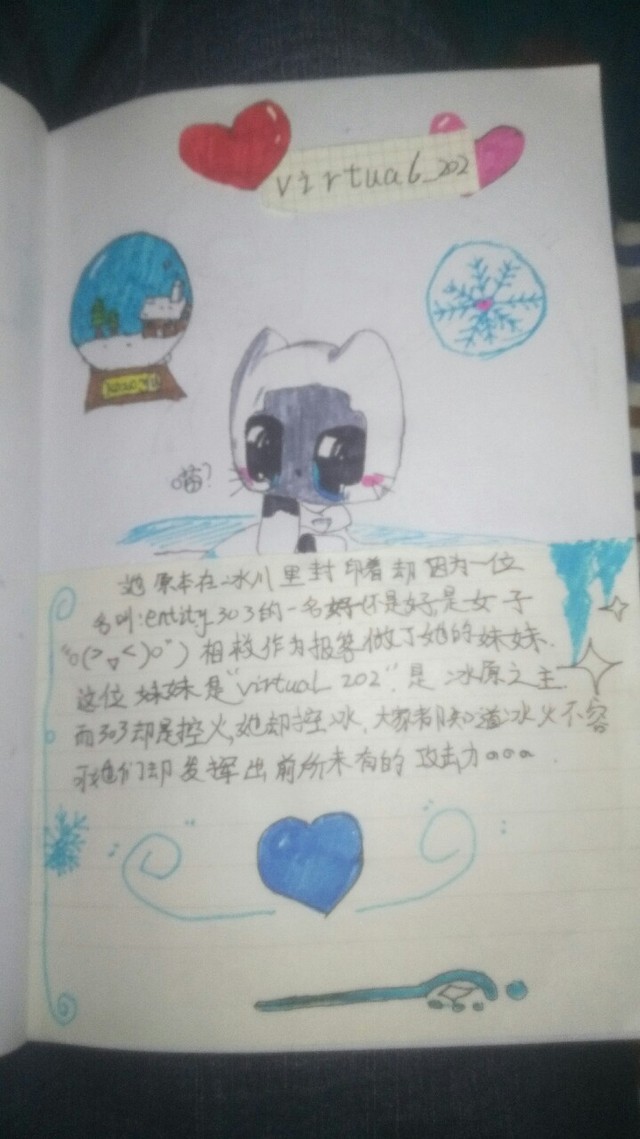 virtual_202
喵?
她原本在冰川里封印着却因为一位
名叫:entity 303的一名好像是好是女子
"o(>﹏<)o") 相救作为报答做了她的妹妹.
这位妹妹是"virtual 202",是冰原之主.
而303却是控火,她却控冰,大家都知道冰火不容
可她们却发挥出前所未有的攻击力